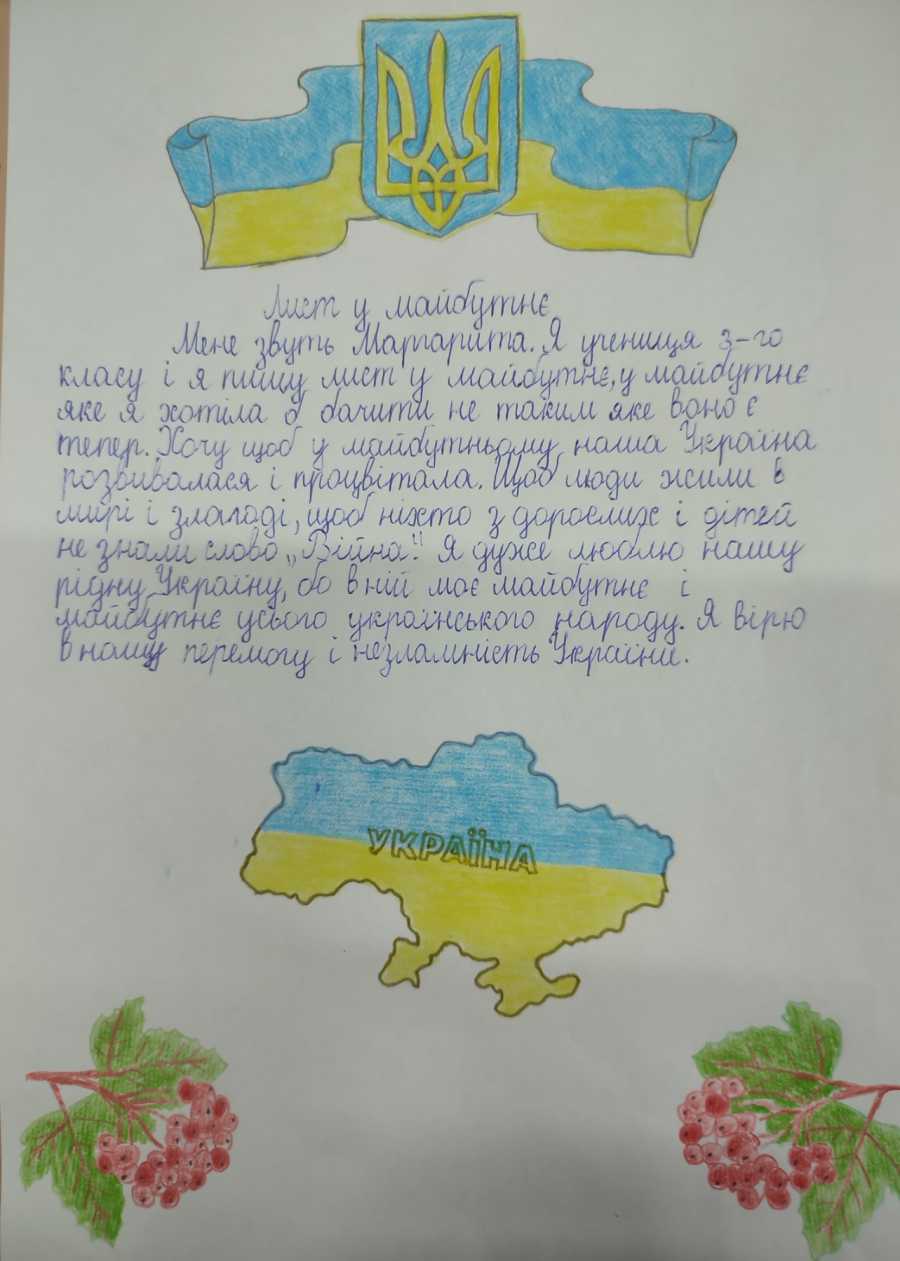 Лист у майбутнє
Мене звуть Маргарита. Я учениця 3-го
класу і я пишу лист у майбутнє, у майбутнє
яке я хотіла б бачити не таким яке воно є
тепер. Хочу щоб у майбутньому наша Україна
розвивалася і процвітала. Щоб люди жили в
мирі і злагоді, щоб ніхто з дорослих і дітей
не знали слово „Війна". Я дуже люблю нашу
рідну Україну, бо в ній моє майбутнє і
майбутнє усього українського народу. Я вірю
в нашу перемогу і незламність України.
УКРАЇНА